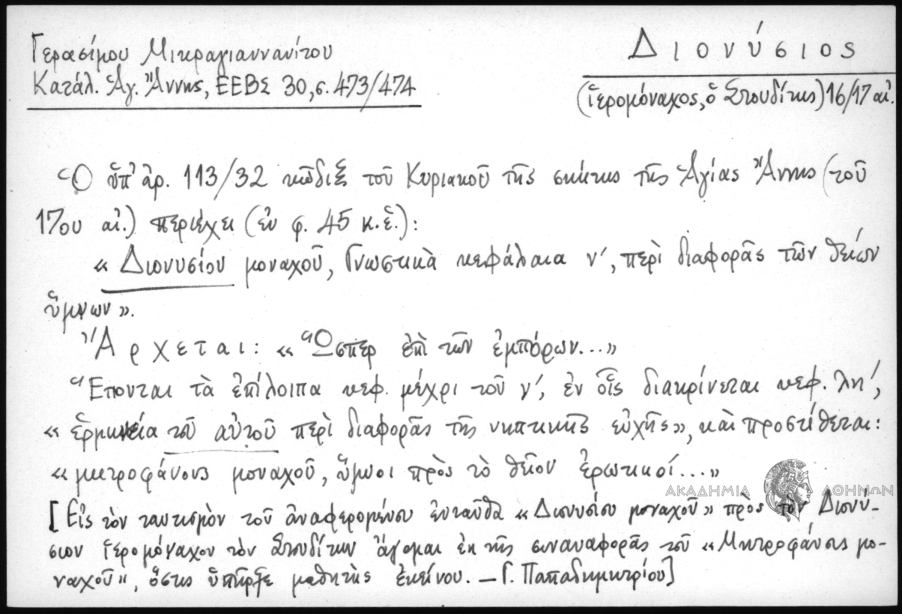 Γερασίμου Μικραγιαννανίτου
Κατάλ. Ἁγ. Ἄννης, ΕΕΒΣ 30, σ. 473/474
Διονύσιος
(ἱερομόναχος, ὁ Στουδίτης) 16/17 αἰ.
Ὁ ὑπ' ἀρ. 113/32 κῶδιξ τοῦ Κυριακοῦ τῆς σκήτης τῆς Ἁγίας Ἄννης (τοῦ
17ου αἰ.) περιέχει (ἐν φ. 45 κ.ἑ.):
« Διονυσίου μοναχοῦ, Γνωστικὰ κεφάλαια ν', περὶ διαφορᾶς τῶν θείων
ὕμνων ».
Ἄρχεται: « Ὥσπερ ἐπὶ τῶν ἐμπόρων... »
Ἕπονται τὰ ἐπίλοιπα κεφ. μέχρι τοῦ ν', ἐν οἷς διακρίνεται κεφ. λη',
« ἑρμηνεία τοῦ αὐτοῦ περὶ διαφορᾶς τῆς νηπτικῆς εὐχῆς », καὶ προστίθεται:
« μητροφάνους μοναχοῦ, ὕμνοι πρὸς τὸ θεῖον ἐρωτικοί... »
ΑΚΑΔΗΜΙΑ ΑΘΗΝΩΝ
[Εἰς τὸν ταυτισμὸν τοῦ ἀναφερομένου ἐνταῦθα « Διονυσίου μοναχοῦ » πρὸς τὸν Διονύ-
σιον ἱερομόναχον τὸν Στουδίτην ἄγομαι ἐκ τῆς συναναφορᾶς τοῦ « Μητροφάνους μο-
ναχοῦ", ὅστις ὑπῆρξε μαθητὴς ἐκείνου. — Γ. Παπαδημητρίου]